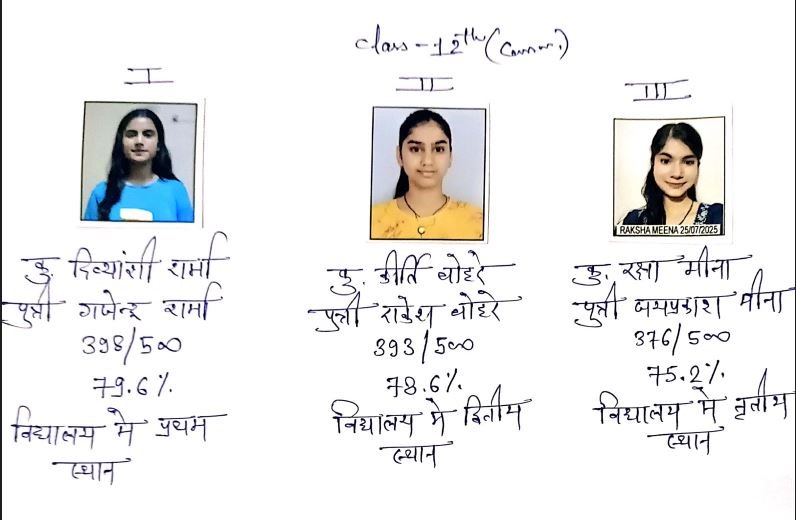 class - 12th (Comm.)
I
कु. दिव्यांशी शर्मा
पुत्री गजेन्द्र शर्मा
398/500
79.6%.
विद्यालय में प्रथम
स्थान
II
कु. कीर्ति वोहरे
पुत्री राकेश वोहरे
393/500
78.6%.
विद्यालय में द्वितीय
स्थान
III
RAKSHA MEENA 25/07/2025
कु. रक्षा मीना
पुत्री जयप्रकाश मीना
376/500
75.2%.
विद्यालय में तृतीय
स्थान